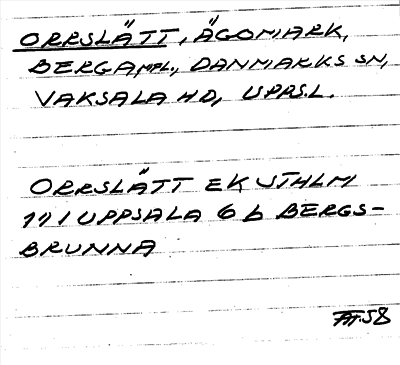 ORRSLÄTT, ÄGOMARK,
BERGA MPL., DANMARKS SN,
VAKSALA HD, UPPS.L.
ORRSLÄTT EK UTHLM
11 I UPPSALA 6 b BERGS-
BRUNNA
58